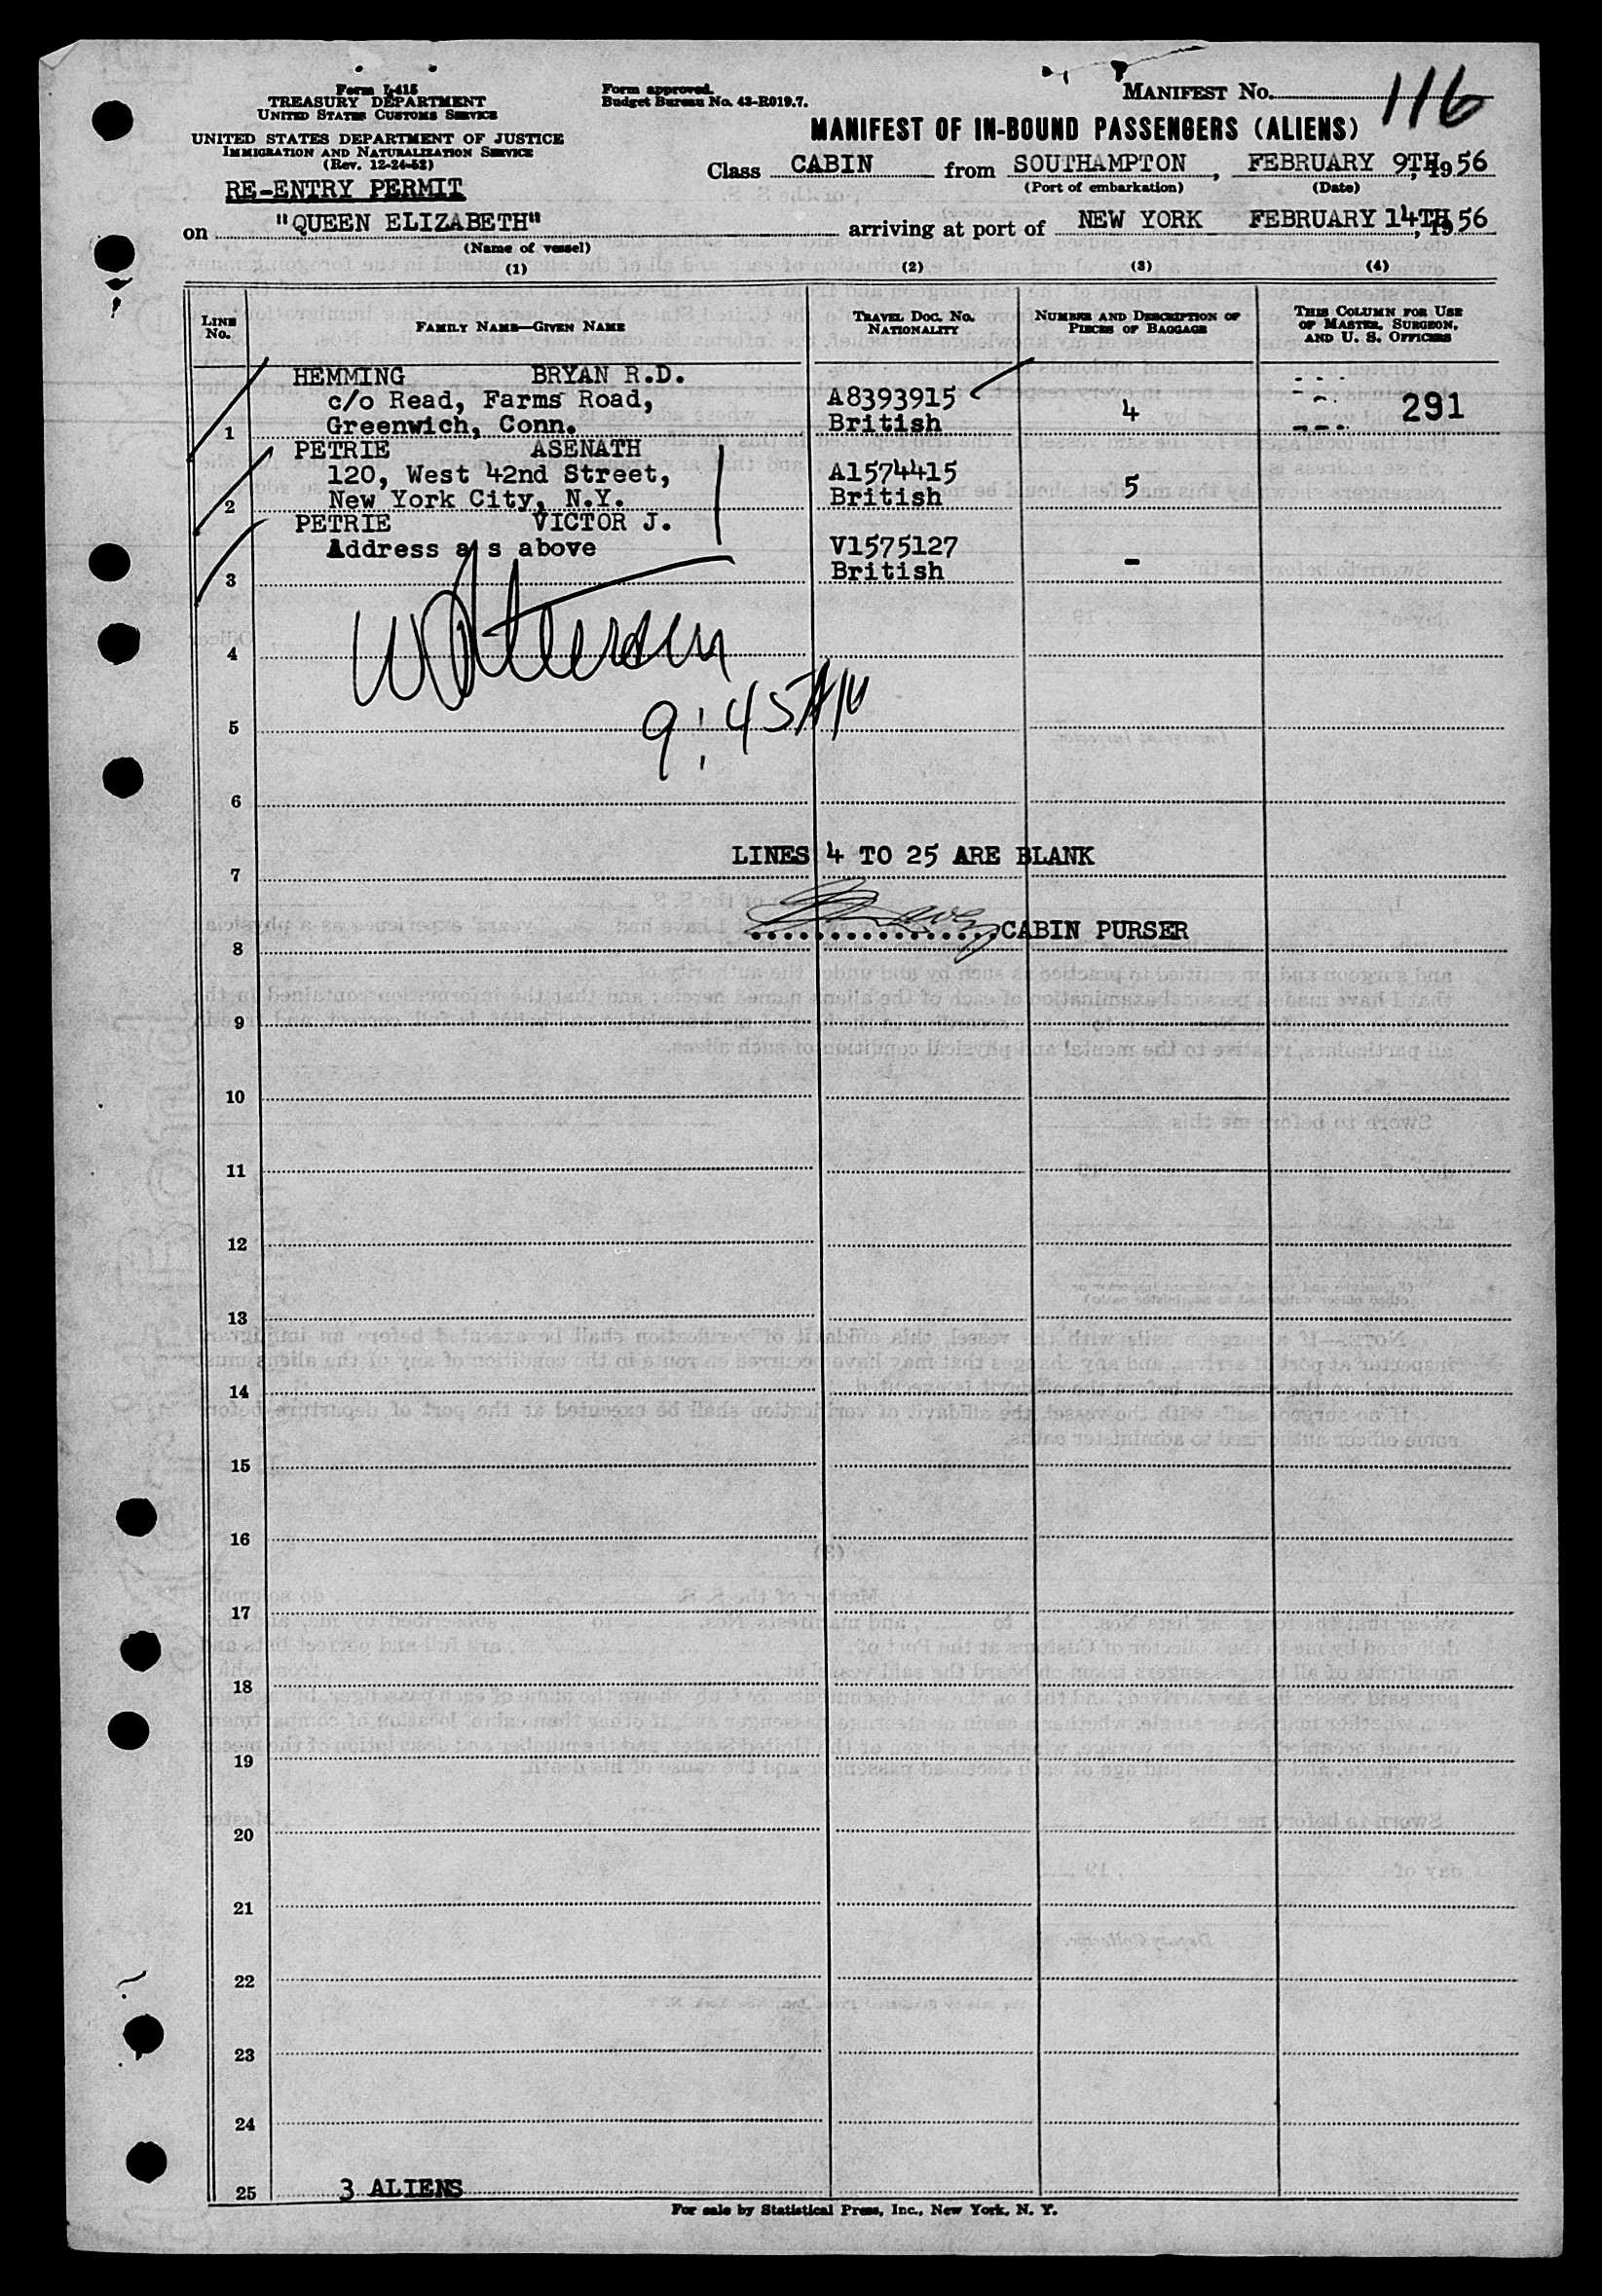 Form I-415
TREASURY DEPARTMENT
UNITED STATES CUSTOMS SERVICE
UNITED STATES DEPARTMENT OF JUSTICE
IMMIGRATION AND NATURALIZATION SERVICE
(Rev. 12-24-52)
RE-ENTRY PERMIT
Form approved.
Budget Bureau No. 43-R019.7.
MANIFEST No. 116
MANIFEST OF IN-BOUND PASSENGERS (ALIENS)
Class CABIN from SOUTHAMPTON, FEBRUARY 9TH, 1956
(Port of embarkation) (Date)
on "QUEEN ELIZABETH" arriving at port of NEW YORK FEBRUARY 14TH, 1956
(Name of vessel)
(1) (2) (3) (4)
LINE No. FAMILY NAME—GIVEN NAME TRAVEL DOC. No. NATIONALITY NUMBER AND DESCRIPTION OF PIECES OF BAGGAGE THIS COLUMN FOR USE OF MASTER, SURGEON, AND U. S. OFFICERS
HEMMING BRYAN R.D.
c/o Read, Farms Road, A8393915 4 291
1 Greenwich, Conn. British
PETRIE ASENATH
120, West 42nd Street, A1574415 5
2 New York City, N.Y. British
PETRIE VICTOR J.
Address a s above V1575127 -
3 British
4
9:45 AM
5
6
LINES 4 TO 25 ARE BLANK
7
CABIN PURSER
8
9
10
11
12
13
14
15
16
17
18
19
20
21
22
23
24
25 3 ALIENS
For sale by Statistical Press, Inc., New York, N. Y.